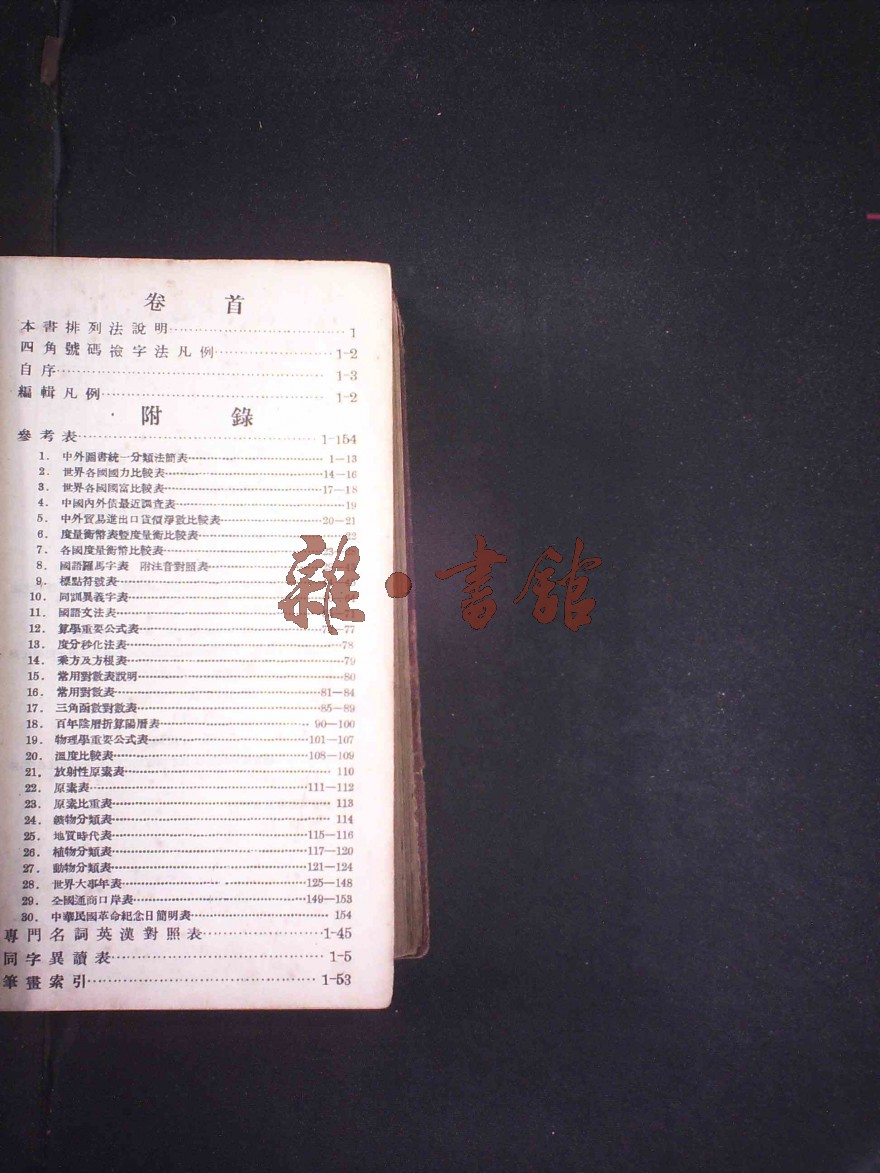 卷 首
本書排列法說明 1
四角號碼檢字法凡例 1-2
自序 1-3
編輯凡例 1-2
附 錄
參考表 1-154
1. 中外圖書統一分類法簡表 1—13
2. 世界各國國力比較表 14—16
3. 世界各國國富比較表 17—18
4. 中國內外債最近調查表 19
5. 中外貿易進出口貨價淨數比較表 20—21
6. 度量衡幣表暨度量衡比較表
7. 各國度量衡幣比較表 23
8. 國語羅馬字表 附注音對照表
9. 標點符號表
10. 同訓異義字表
11. 國語文法表
12. 算學重要公式表 77
13. 度分秒化法表 78
14. 乘方及方根表 79
15. 常用對數表說明 80
16. 常用對數表 81—84
17. 三角函數對數表 85—89
18. 百年陰曆折算陽曆表 90—100
19. 物理學重要公式表 101—107
20. 溫度比較表 108—109
21. 放射性原素表 110
22. 原素表 111—112
23. 原素比重表 113
24. 鑛物分類表 114
25. 地質時代表 115—116
26. 植物分類表 117—120
27. 動物分類表 121—124
28. 世界大事年表 125—148
29. 全國通商口岸表 149—153
30. 中華民國革命紀念日簡明表 154
專門名詞英漢對照表 1-45
同字異讀表 1-5
筆畫索引 1-53
雜·書館